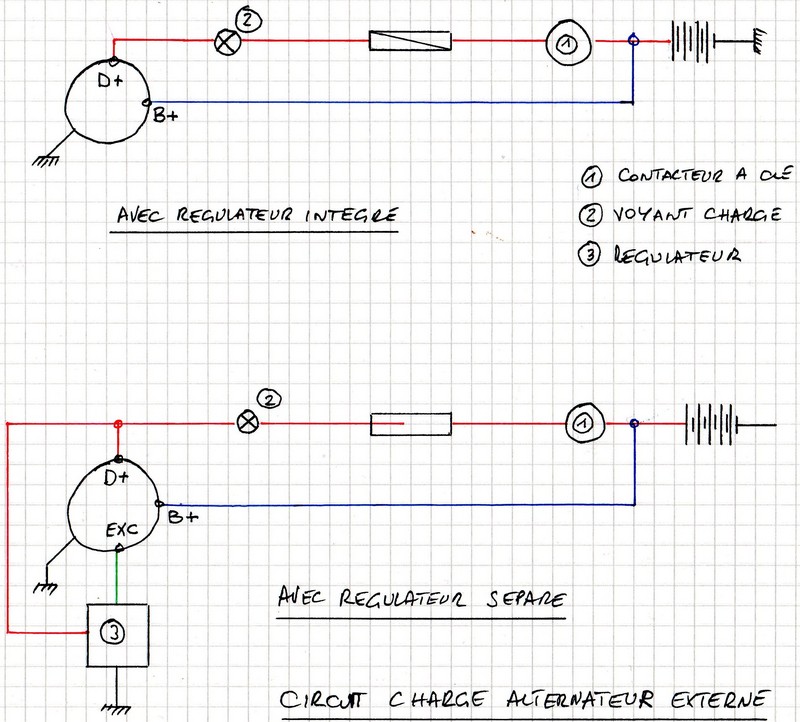 2
1
D+
B+
1 CONTACTEUR A CLÉ
AVEC REGULATEUR INTEGRE
2 VOYANT CHARGE
3 REGULATEUR
2
1
D+
B+
EXC
AVEC REGULATEUR SEPARE
3
CIRCUIT CHARGE ALTERNATEUR EXTERNE